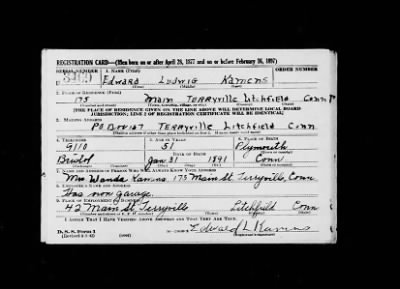 REGISTRATION CARD—(Men born on or after April 28, 1877 and on or before February 16, 1897)
SERIAL NUMBER 1. NAME (Print) ORDER NUMBER
Edward Ludwig Kamens
(First) (Middle) (Last)
2. PLACE OF RESIDENCE (Print)
175 Main Terryville Litchfield Conn
(Number and street) (Town, township, village, or city) (County) (State)
[THE PLACE OF RESIDENCE GIVEN ON THE LINE ABOVE WILL DETERMINE LOCAL BOARD
JURISDICTION; LINE 2 OF REGISTRATION CERTIFICATE WILL BE IDENTICAL]
3. MAILING ADDRESS
PO Box 127 Terryville Litchfield Conn
[Mailing address if other than place indicated on line 2. If same insert word same]
4. TELEPHONE 5. AGE IN YEARS 6. PLACE OF BIRTH
9110 51 Plymouth
DATE OF BIRTH (Town or county)
Bristol Jan 31 1891 Conn
(Exchange) (Number) (Mo.) (Day) (Yr.) (State or country)
7. NAME AND ADDRESS OF PERSON WHO WILL ALWAYS KNOW YOUR ADDRESS
Mrs Wanda Kamens 175 Main St. Terryville, Conn
8. EMPLOYER'S NAME AND ADDRESS
garage
9. PLACE OF EMPLOYMENT OR BUSINESS
42 Main St. Terryville Litchfield Conn
(Number and street or R. F. D. number) (Town) (County) (State)
I AFFIRM THAT I HAVE VERIFIED ABOVE ANSWERS AND THAT THEY ARE TRUE.
D. S. S. Form 1 Edward L Kamens
(Revised 4-1-42) (over)